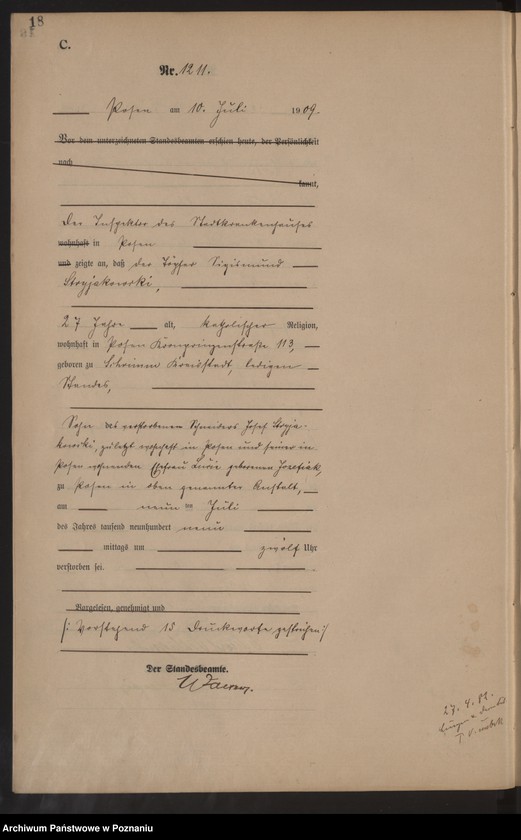 18
C.
Nr. 1211.
Posen am 10. Juli 1909.
Vor dem unterzeichneten Standesbeamten erschien heute, der Persönlichkeit
nach
kannt,
Der Inspektor des Stadtkrankenhauses
wohnhaft in Posen
und zeigte an, daß der Töpfer Sigismund
Stryjakowski,
27 Jahre alt, katholischer Religion,
wohnhaft in Posen Kronprinzenstraße 113,
geboren zu Schrimm Kreisstadt, ledigen
Standes,
Sohn des verstorbenen Schneiders Josef Stryja-
kowski, zuletzt wohnhaft in Posen und seiner in
Posen wohnenden Ehefrau Lucie geborenen Jozefiak,
zu Posen in oben genannter Anstalt,
am neun ten Juli
des Jahres tausend neunhundert neun
mittags um zwölf Uhr
verstorben sei.
Vorgelesen, genehmigt und
/: Vorstehend 15 Druckworte gestrichen :/
Der Standesbeamte.
27. 4. 82.
Archiwum Państwowe w Poznaniu